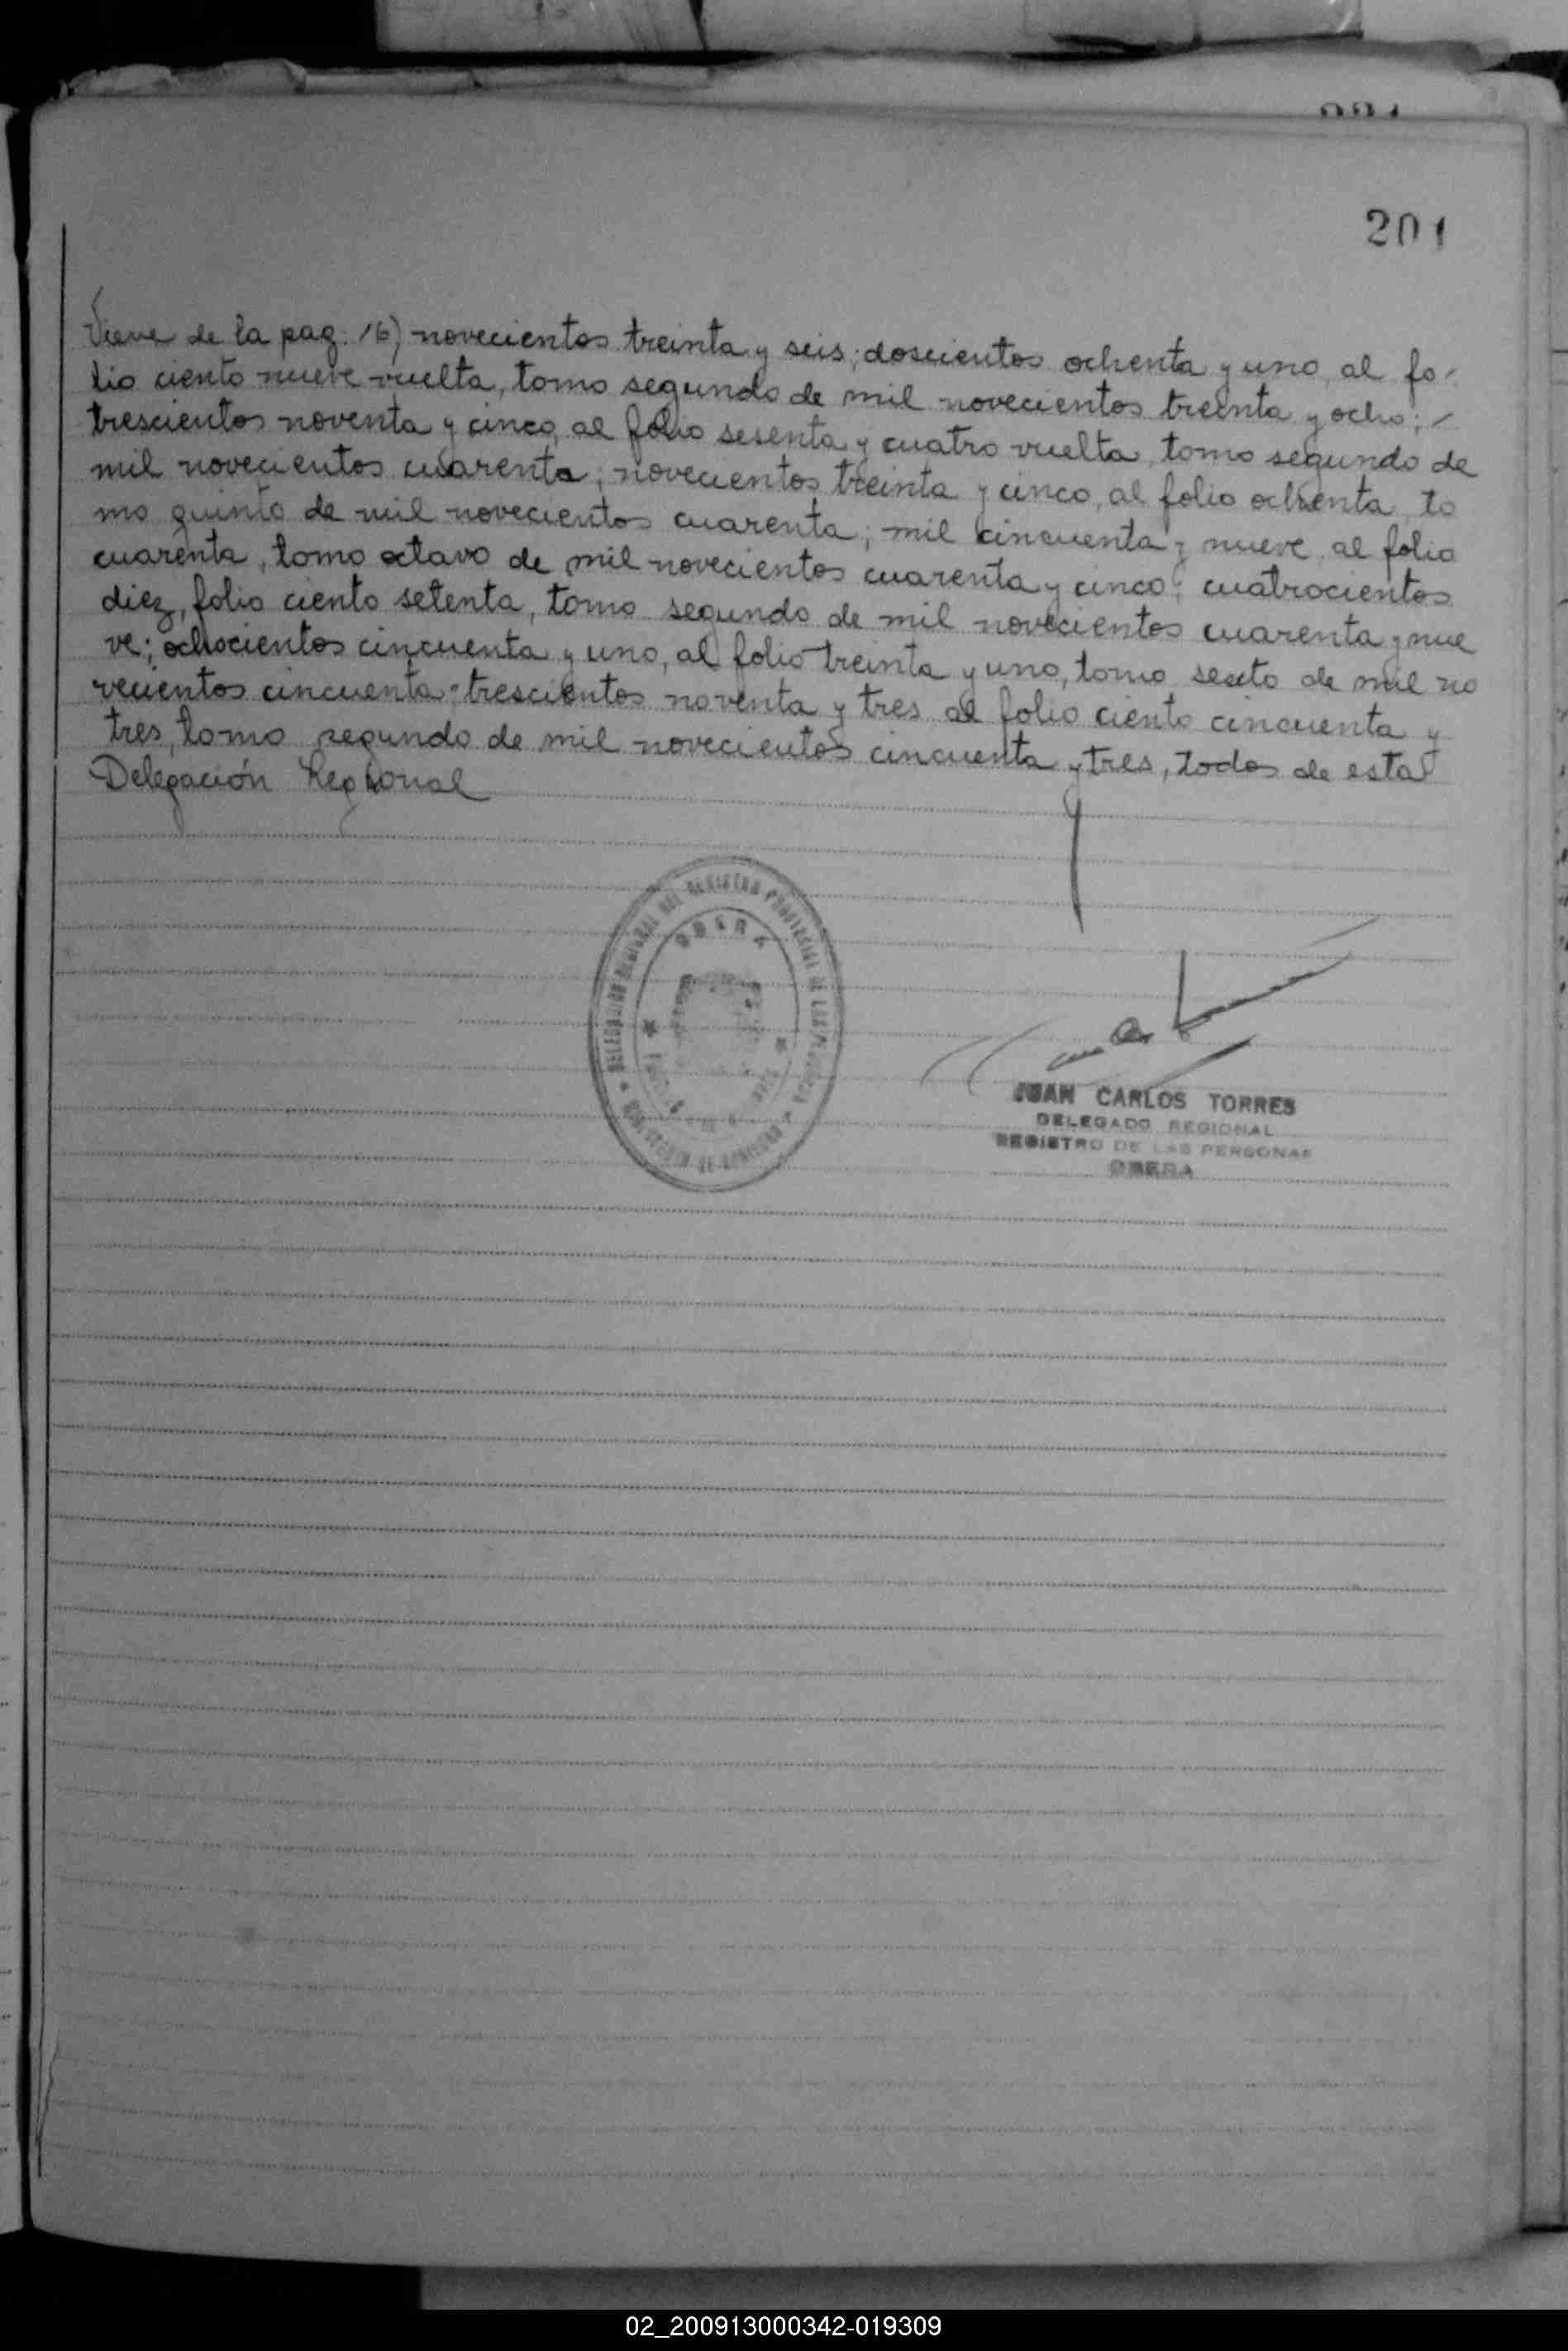 201
Viene de la pag. 16) novecientos treinta y seis; doscientos ochenta y uno, al fo-
lio ciento nueve vuelta, tomo segundo de mil novecientos treinta y ocho; -
trescientos noventa y cinco, al folio sesenta y cuatro vuelta, tomo segundo de
mil novecientos cuarenta; novecientos treinta y cinco, al folio ochenta, to
mo quinto de mil novecientos cuarenta; mil cincuenta y nueve, al folio
cuarenta, tomo octavo de mil novecientos cuarenta y cinco; cuatrocientos
diez, folio ciento setenta, tomo segundo de mil novecientos cuarenta y nue
ve; ochocientos cincuenta y uno, al folio treinta y uno, tomo sexto de mil no
vecientos cincuenta; trescientos noventa y tres al folio ciento cincuenta y
tres, tomo segundo de mil novecientos cincuenta y tres, todos de esta
Delegación Regional
DELEGACION REGIONAL DEL REGISTRO PROVINCIAL DE LAS PERSONAS
OBERA
JUAN CARLOS TORRES
DELEGADO REGIONAL
REGISTRO DE LAS PERSONAS
OBERA
02_200913000342-019309